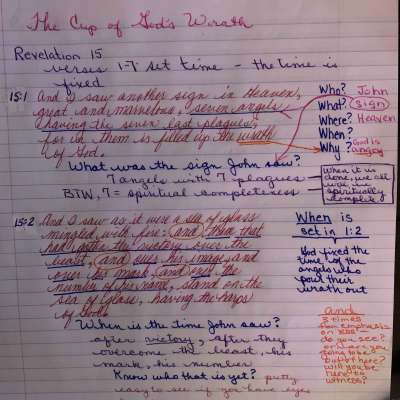 The Cup of God's Wrath
Revelation 15
verses 1-7 set time - the time is
fixed
15:1 And I saw another sign in Heaven,
great and marvelous, seven angels
having the seven last plagues;
for in them is filled up the wrath
of God.
Who? John
What? sign
Where? Heaven
When?
Why? God is
angry
What was the sign John saw?
7 angels with 7 plagues
BTW, 7 = spiritual completeness
When it is
done, we all
will be
spiritually
complete
15:2 And I saw as it were a sea of glass
mingled with fire: (and) them that
had gotten the victory over the
beast, (and) over his image, and
over his mark, (and) over the
number of his name, stand on the
sea of glass, having the harps
of God.
When is
set in 1:2
God fixed the
time of the
angels who
pour their
wrath out
When is the time John saw?
after victory, after they
overcome the beast, his
mark, his number
Know who that is yet? pretty
easy to see if you have eyes
and
3 times
for emphasis
on
do you see?
or are you
going to be
out of here?
will you be
witness?